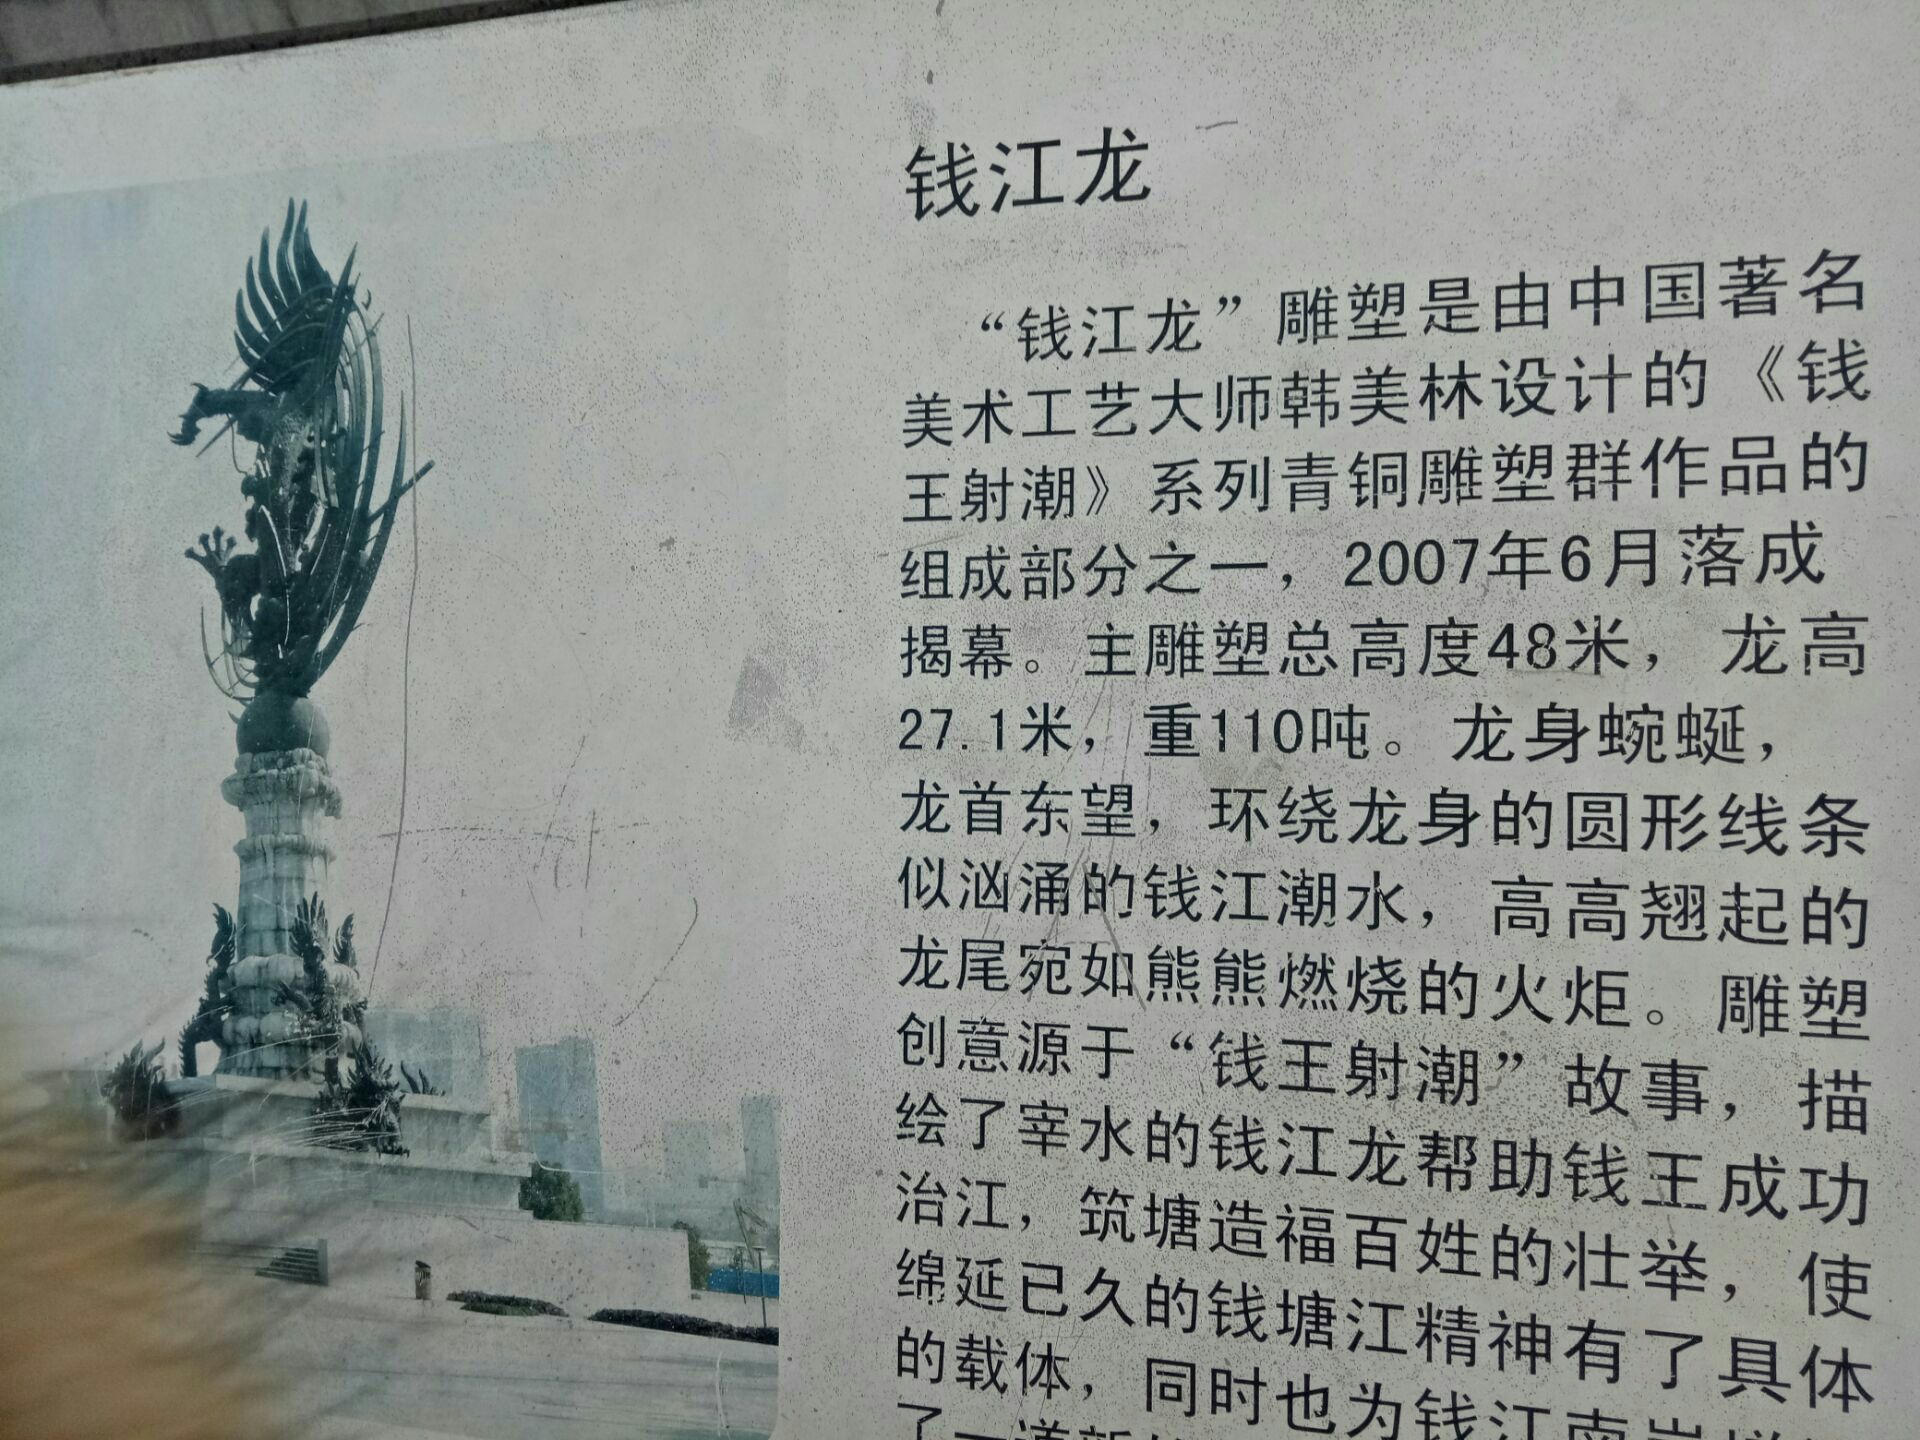 钱江龙
“钱江龙”雕塑是由中国著名
美术工艺大师韩美林设计的《钱
王射潮》系列青铜雕塑群作品的
组成部分之一，2007年6月落成
揭幕。主雕塑总高度48米，龙高
27.1米，重110吨。龙身蜿蜒，
龙首东望，环绕龙身的圆形线条
似汹涌的钱江潮水，高高翘起的
龙尾宛如熊熊燃烧的火炬。雕塑
创意源于“钱王射潮”故事，描
绘了宰水的钱江龙帮助钱王成功
治江，筑塘造福百姓的壮举，使
绵延已久的钱塘江精神有了具体
的载体，同时也为钱江南岸增
了一道新